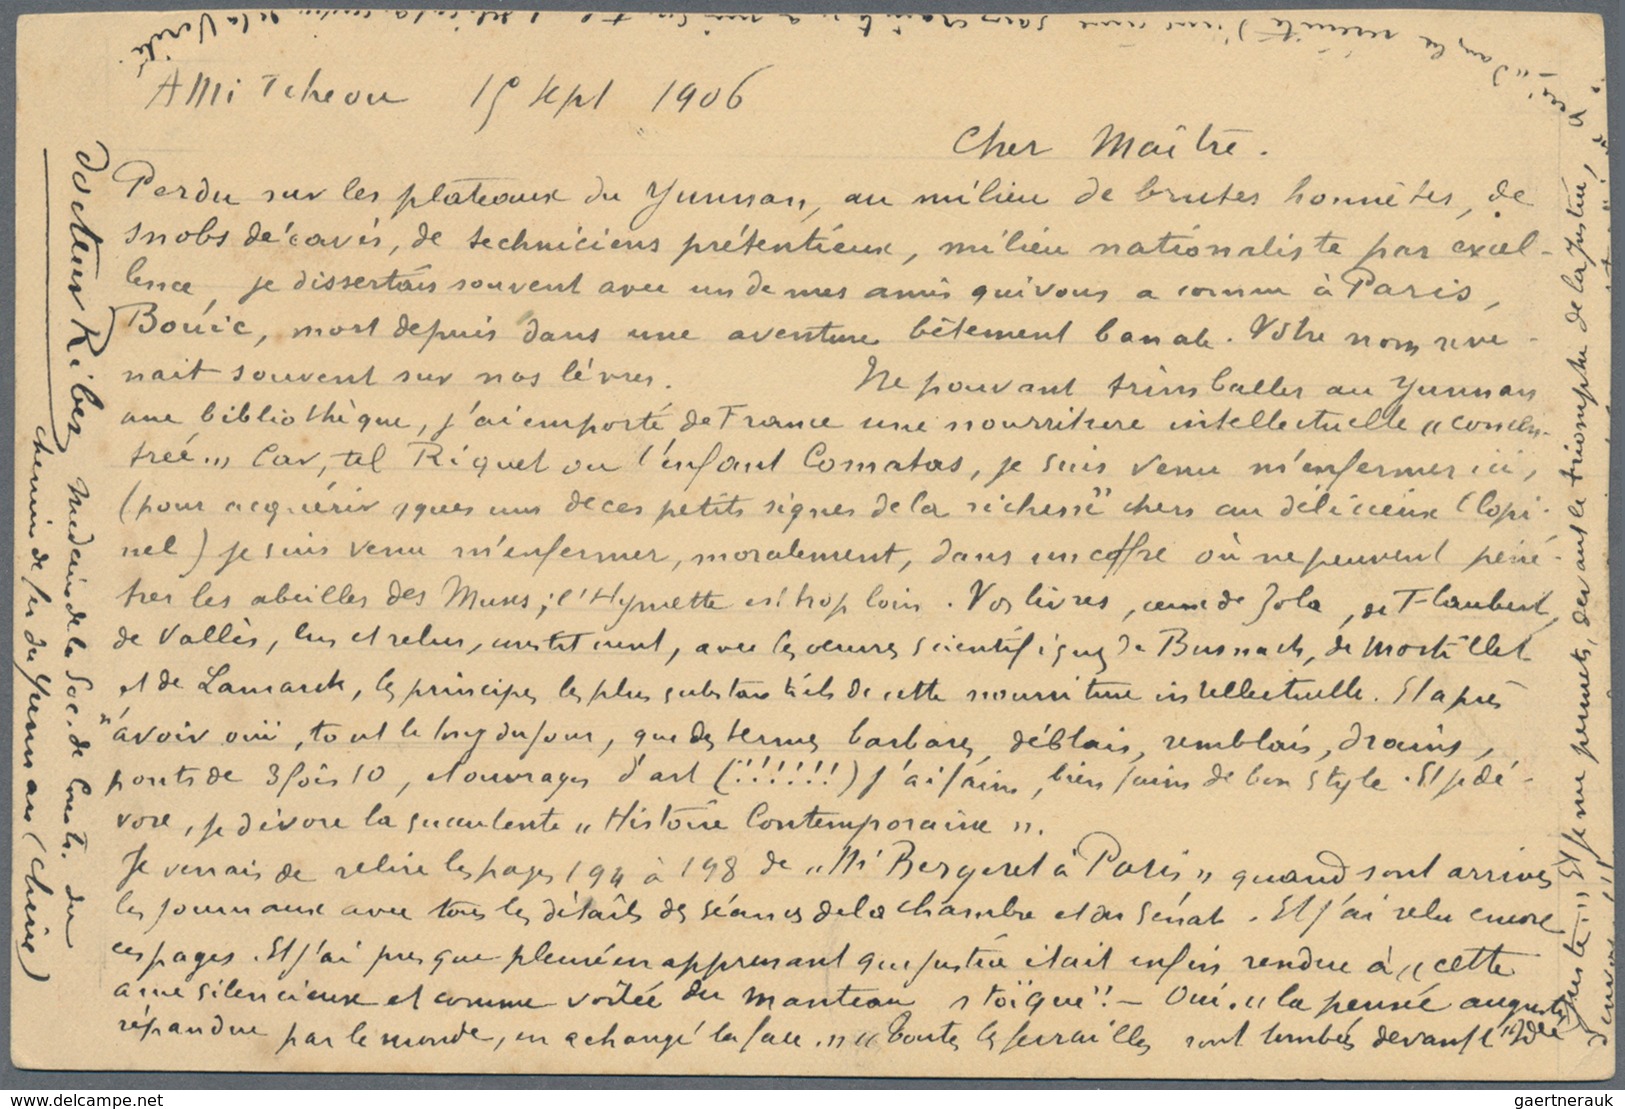 AMi Tcheou 15 Sept 1906
Cher Maître.
Perdu sur les plateaux du Yunnan, au milieu de brutes honnêtes, de
snobs décavés, de techniciens prétentieux, milieu nationaliste par excel-
lence, je dissertais souvent avec un de mes amis qui vous a connu à Paris,
Bouïc, mort depuis dans une aventure bêtement banale. Votre nom reve-
nait souvent sur nos lèvres. Ne pouvant trimballer au Yunnan
une bibliothèque, j'ai emporté de France une nourriture intellectuelle "concen-
trée". Car, tel Riquet ou l'enfant Comatas, je suis venu m'enfermer ici,
(pour acquérir qques uns de ces petits signes de la richesse" chers au délicieux Clopi-
nel) je suis venu m'enfermer, moralement, dans un coffre où ne peuvent péné-
trer les abeilles des Muses; l'Hymette est trop loin. Vos livres, ceux de Zola, de Flaubert,
de Vallès, lus et relus, constituent, avec les oeuvres scientifiques de de Mortillet
et de Lamarck, les principes les plus substantiels de cette nourriture intellectuelle. Et après
"avoir ouï, tout le long du jour, que des termes barbares, déblais, remblais, drains,
ponts de 3 fois 10, et ouvrages d'art (!!!!!!) j'ai faim, bien faim de bon style. Et je dé-
vore, je dévore la succulente "Histoire Contemporaine".
Je venais de relire les pages 194 à 198 de "Mr Bergeret à Paris" quand sont arrivés
les journaux avec tous les détails des séances de la chambre et du Sénat. Et j'ai relu encore
ces pages. Et j'ai presque pleuré en apprenant que justice était enfin rendue à "cette
âme silencieuse et comme voilée du manteau stoïque"! - Oui, "la pensée auguste
répandue par le monde, en a changé la face." "toutes les ferrailles sont tombées devant l'"Idée
juste". Et je me permets, devant le triomphe de la Justice, à
dans la sérénité d'une âme sans crainte
de la Vérité
Docteur Ribes Médecin de la Soc. de Constr. du
chemin de fer du Yunnan (Chine)
gaertnerauk